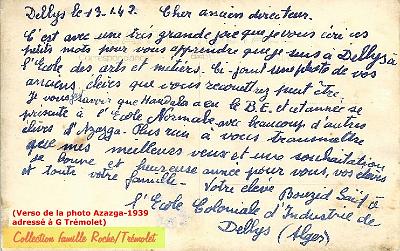 Dellys le 13.1.47. Cher ancien directeur.
C'est avec une très grande joie que je vous écris ces
petits mots pour vous apprendre que je suis à Dellys à
l'Ecole des arts et métiers. Ci joint une photo de vos
anciens élèves que vous reconnaîtrez peut être.
Je vous savoir que Handala a eu le B.E. et cet année se
présente à l'Ecole Normale avec beaucoup d'autres
élèves d'Azazga. Plus rien à vous transmettre
que mes meilleurs vœux et une souhaitation
de bonne et heureuse année pour vous, vos élèves
et toute votre famille. Votre élève Bouzid Saïd à
l'Ecole Coloniale d'Industrie de
Dellys (Alger)
(Verso de la photo Azazga-1939
adressé à G Trémolet)
Collection famille Roche/Trémolet